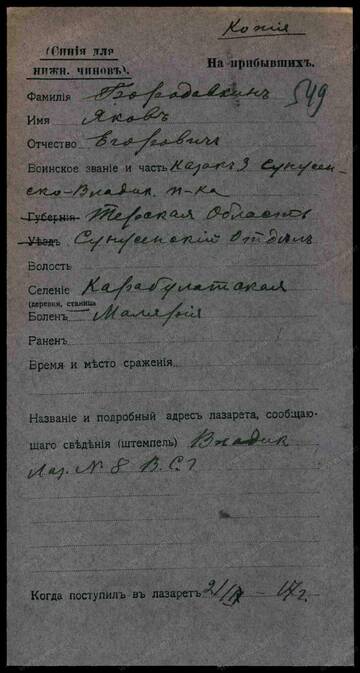 Копія
(Синія для
нижн. чиновъ).
На прибывшихъ.
549
Фамилія Бородавкинъ
Имя Яковъ
Отчество Егоровичъ
Воинское званіе и часть Казакъ 3 Сунусен-
ско-Владик. п-ка
Губернія Терская Область
Уѣздъ Сунусенскій Отдѣлъ
Волость
Селеніе Карабулатская
(деревня, станица)
Боленъ Малярія
Раненъ
Время и мѣсто сраженія
Названіе и подробный адресъ лазарета, сообщаю-
щаго свѣдѣнія (штемпель) Владик
Лаз. № 8 В.С.
Когда поступилъ въ лазаретъ 21/ - 17 г.